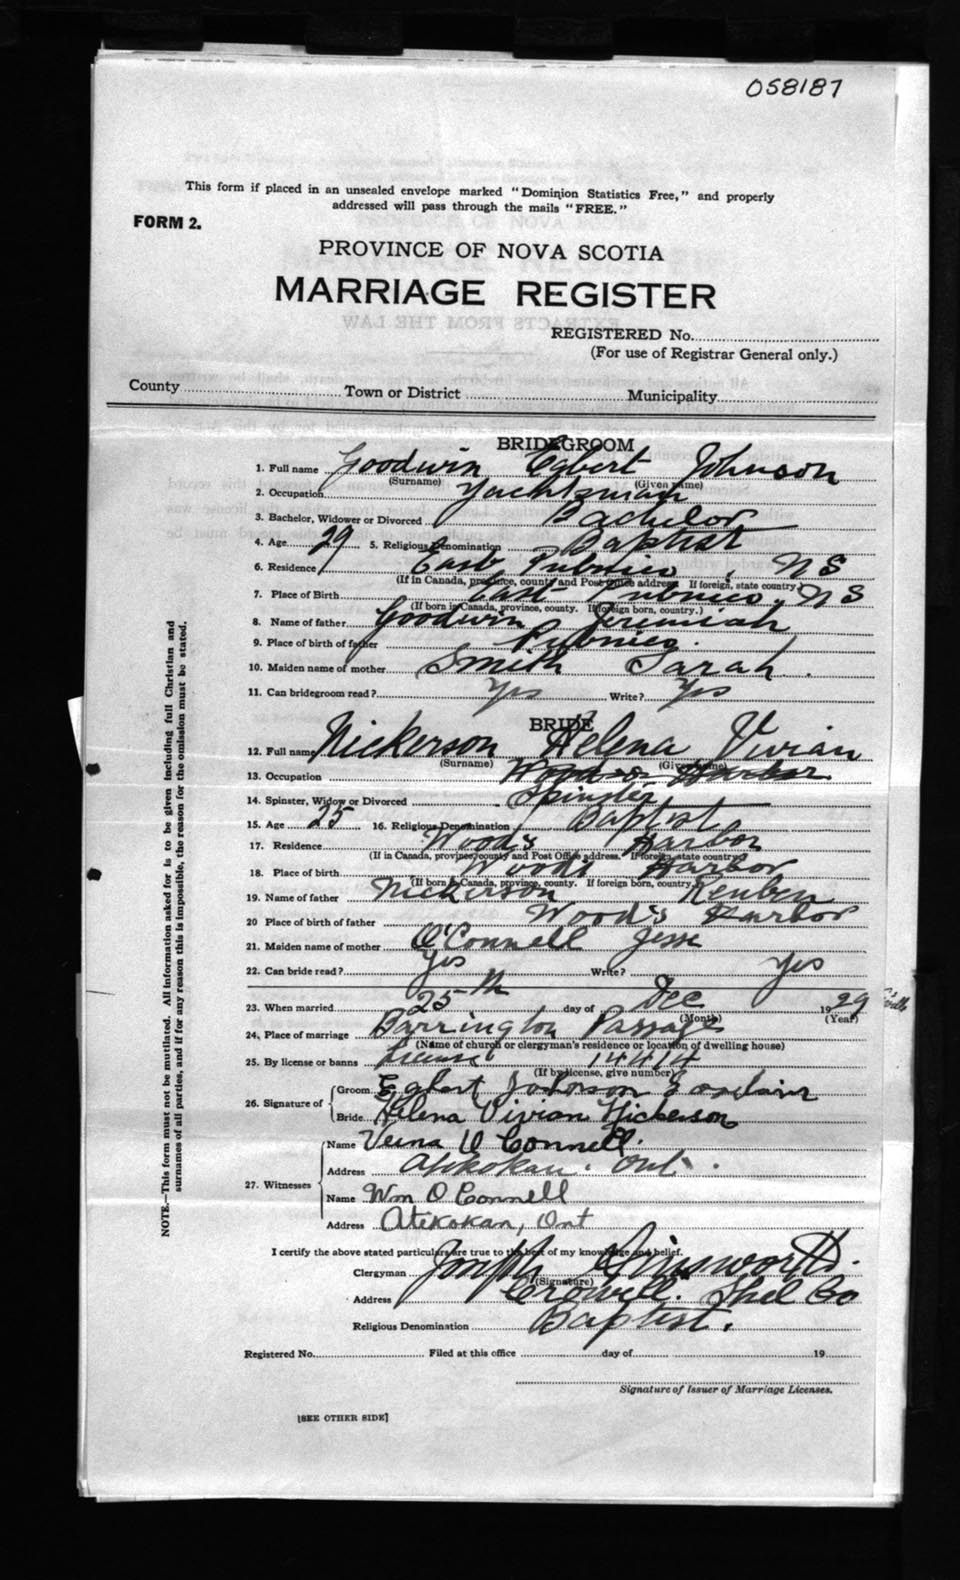 058187
This form if placed in an unsealed envelope marked "Dominion Statistics Free," and properly
addressed will pass through the mails "FREE."
FORM 2.
PROVINCE OF NOVA SCOTIA
MARRIAGE REGISTER
REGISTERED No.
(For use of Registrar General only.)
County Town or District Municipality
BRIDEGROOM
1. Full name Goodwin Egbert Johnson
(Surname) (Given name)
2. Occupation Yachtsman
3. Bachelor, Widower or Divorced Bachelor
4. Age 29 5. Religious Denomination Baptist
6. Residence East Pubnico, N S
(If in Canada, province, county and Post Office address. If foreign, state country)
7. Place of Birth East Pubnico, N S
(If born in Canada, province, county. If foreign born, country.)
8. Name of father Goodwin Jeremiah
9. Place of birth of father Pubnico
10. Maiden name of mother Smith Sarah
11. Can bridegroom read? Yes Write? Yes
BRIDE
12. Full name Nickerson Helena Vivian
(Surname) (Given name)
13. Occupation Woods Harbor
14. Spinster, Widow or Divorced Spinster
15. Age 25 16. Religious Denomination Baptist
17. Residence Wood's Harbor
(If in Canada, province, county and Post Office address. If foreign, state country)
18. Place of birth Wood's Harbor
(If born in Canada, province, county. If foreign born, country)
19. Name of father Nickerson Reuben
20 Place of birth of father Wood's Harbor
21. Maiden name of mother O'Connell Jesse
22. Can bride read? Yes Write? Yes
23. When married 25th day of Dec 1929
(Month) (Year)
24. Place of marriage Barrington Passage
(Name of church or clergyman's residence or location of dwelling house)
25. By license or banns License 14414
(If by license, give number)
26. Signature of Groom Egbert Johnson Goodwin
Bride Helena Vivian Nickerson
27. Witnesses Name Verna O Connell.
Address Atikokan. Ont.
Name Wm O Connell
Address Atikokan, Ont
I certify the above stated particulars are true to the best of my knowledge and belief.
Clergyman Joseph
(Signature)
Address Crowell. Shel Co
Religious Denomination Baptist.
Registered No. Filed at this office day of 19
Signature of Issuer of Marriage Licenses.
[SEE OTHER SIDE]
NOTE.—This form must not be mutilated. All information asked for is to be given including full Christian and
surnames of all parties, and if for any reason this is impossible, the reason for the omission must be stated.